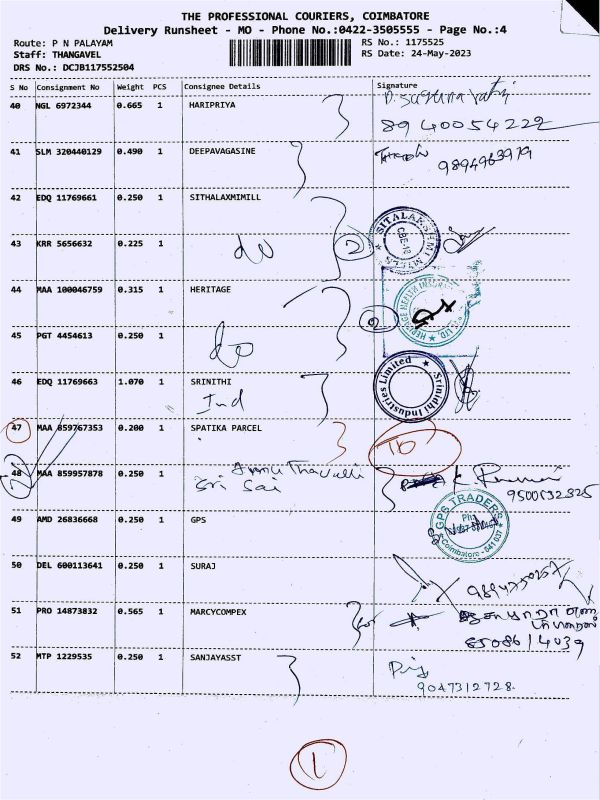 THE PROFESSIONAL COURIERS, COIMBATORE
Delivery Runsheet - MO - Phone No.:0422-3505555 - Page No.:4
Route: P N PALAYAM
Staff: THANGAVEL
DRS No.: DCJB117552504
RS No.: 1175525
RS Date: 24-May-2023
S No Consignment No Weight PCS Consignee Details Signature
40 NGL 6972344 0.665 1 HARIPRIYA
8940054222
41 SLM 320440129 0.490 1 DEEPAVAGASINE
9894963979
42 EDQ 11769661 0.250 1 SITHALAXMIMILL
SITALAKSHMI MILLS
43 KRR 5656632 0.225 1 do 2
44 MAA 100046759 0.315 1 HERITAGE
2
45 PGT 4454613 0.250 1 do
46 EDQ 11769663 1.070 1 SRINITHI
Ind
Srinidhi Industries Limited
47 MAA 859767353 0.200 1 SPATIKA PARCEL
48 MAA 859957878 0.250 1 Sri Sai
9500132325
49 AMD 26836668 0.250 1 GPS
GPS TRADERS
Coimbatore - 641 037
50 DEL 600113641 0.250 1 SURAJ
51 PRO 14873832 0.565 1 MARCYCOMPEX
8508614039
52 MTP 1229535 0.250 1 SANJAYASST
9047312728
1